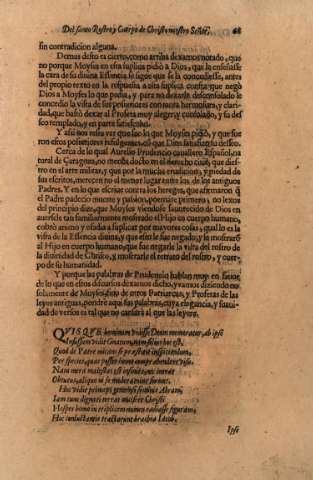 Del santo Rostro y Cuerpo de Christo nuestro Señor. 68
sin contradicion alguna.
Demas desto es cierto, como arriba dexamos notado, que
no porque Moyses en esta suplica pidió a Dios, que le enseñasse
la cara de su diuina Essencia, se sigue que se la concediesse, antes
del propio texto en la respuesta a esta suplica consta que negò
Dios a Moyses lo que pedia, y para no dexarle desconsolado le
concedio la vista de sus posteriores con tanta hermosura, y clari-
dad, que bastò dexar al Profeta muy alegre, y consolado, y su des
seo templado, y en parte satisfecho.
Y assi nos resta ver que fue lo que Moyses pidiò, y que son
ron estos posteriores con que Dios satisfizo su desseo.
Cerca de lo qual Aurelio Prudencio cauallero Español, na
tural de Çaragoça, no menos docto en el metro que diestro
en el arte militar, y que por la mucha erudicion, y piedad de
sus escritos, merecen no el menor lugar entre los de los antiguos
Padres. Y en lo que escriue contra los hereges, que afirmaron q̃
el Padre padecio muerte y passion, poemate primero, no lexos
del principio dize, que Moyses viendose fauorecido de Dios en
auersele tan familiarmente mostrado el Hijo en cuerpo humano,
cobrò animo y osadia a suplicar por mayores cosas, qual lo es la
vista de la Essencia diuina, y que esta le fue negado, y lo mostrarse
el Hijo en cuerpo humano, que fue negarle la vista del rostro de
la diuinidad de Christo, y mostrarle el retrato del rostro, y cuer-
po de su humanidad.
Y porque las palabras de Prudencio hablan muy en fauor
de lo que en estos discursos dexamos dicho, y vamos diziendo no
solamente de Moyses sino de otros Patriarcas, y Profetas de las
leyes antiguas, pondre aqui sus palabras, cuya elegancia, y suaui-
dad de versos es tal que no cansarà al que las leyere.
QVISQVE hominum vidisse Deum memoratur, ab ipso
Infusum vidit Gnatum, nam filius hoc est,
Quod de Patre micans se præstitit inspiciendum,
Per species, quas possit homo comprendere visu.
Nam mera maiestas est infinita, nec intrat
Obtutus, aliquo ni se moderamine formet.
Hunc vidit princeps generosi seminis Abram,
Iam tum dignati terras inuisere Christi
Hospes homo in triplicem numen radiasse figuram,
Hunc conluctantis tractarunt brachia Iacob,
Ipse